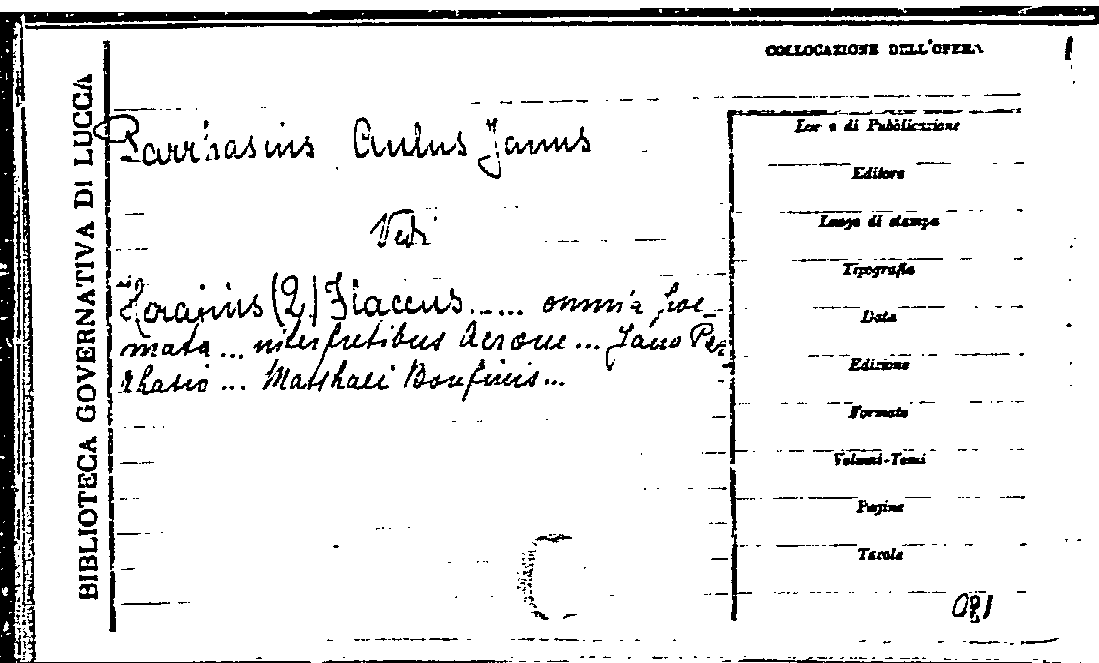 COLLOCAZIONE DELL'OPERA
BIBLIOTECA GOVERNATIVA DI LUCCA
Parrhasius Aulus Janus
Vedi
Horatius (Q) Flaccus ...... omnia poe-
mata ... interpretibus Acrone ... Jano Par-
rhasio ... Matthaei Bonfinis ...
Luogo di Pubblicazione
Editore
Luogo di stampa
Tipografia
Data
Edizione
Formato
Volumi-Tomi
Pagine
Tavole